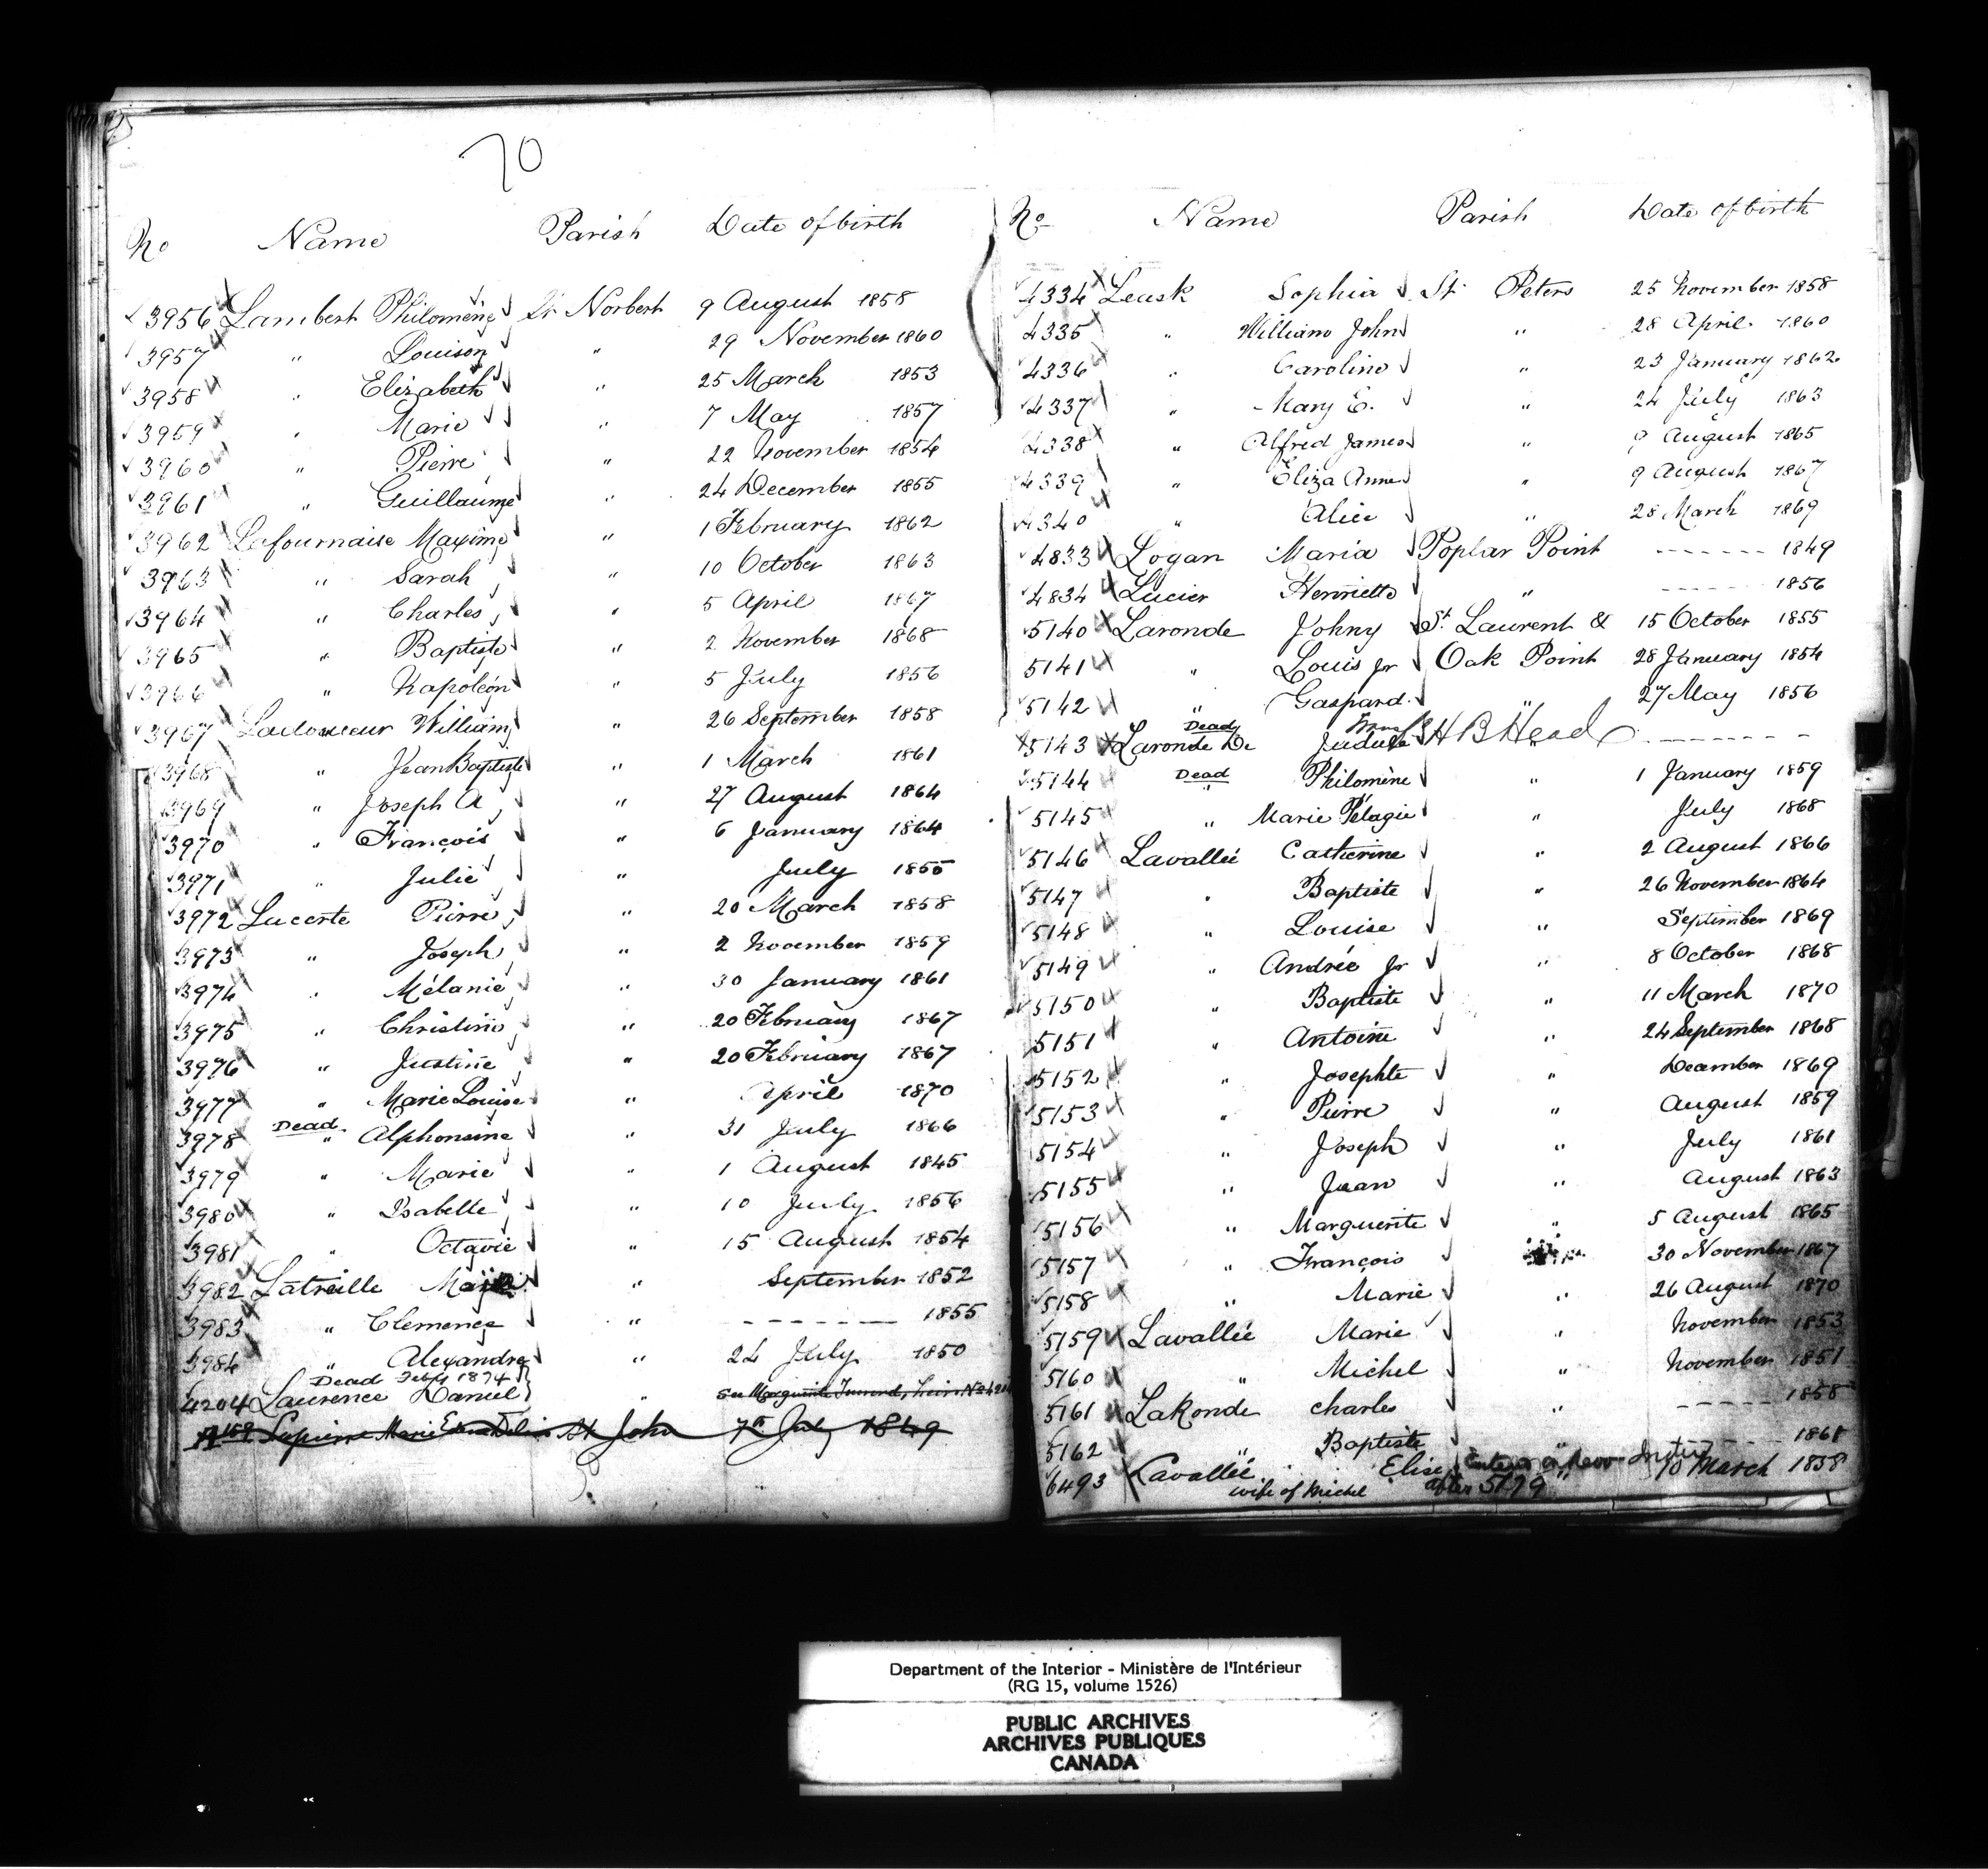 70
No Name Parish Date of birth
3956 Lambert Philomène St Norbert 9 August 1858
3957 " Louison " 29 November 1860
3958 " Elizabeth " 25 March 1853
3959 " Marie " 7 May 1857
3960 " Pierre " 22 November 1854
3961 " Guillaume " 24 December 1855
3962 Lafournaise Maxime " 1 February 1862
3963 " Sarah " 10 October 1863
3964 " Charles " 5 April 1867
3965 " Baptiste " 2 November 1868
3966 " Napoléon " 5 July 1856
3967 Ladouceur William " 26 September 1858
3968 " Jean Baptiste " 1 March 1861
3969 " Joseph A " 27 August 1864
3970 " François " 6 January 1864
3971 " Julie " July 1855
3972 Lucerte Pierre " 20 March 1858
3973 " Joseph " 2 November 1859
3974 " Mélanie " 30 January 1861
3975 " Christine " 20 February 1867
3976 " Justine " 20 February 1867
3977 " Marie Louise " April 1870
Dead
3978 " Alphonsine " 31 July 1866
3979 " Marie " 1 August 1845
3980 " Isabelle " 10 July 1856
3981 " Octavie " 15 August 1854
3982 Latreille Marie " September 1852
3983 " Clemence " ------- 1855
3984 " Alexandre " 24 July 1850
Dead Feby 1874
4204 Laurence Daniel " See Marguerite
Lapierre Marie St John 7th July 1849
No Name Parish Date of birth
4334 Leask Sophia St Peters 25 November 1858
4335 " William John " 28 April 1860
4336 " Caroline " 23 January 1862
4337 " Mary E. " 24 July 1863
4338 " Alfred James " 9 August 1865
4339 " Eliza Anne " 9 August 1867
4340 " Alice " 28 March 1869
4833 Logan Maria Poplar Point ------- 1849
4834 Lucier Henriette " ------ 1856
5140 Laronde Johny St. Laurent & 15 October 1855
5141 " Louis Jr Oak Point 28 January 1854
5142 " Gaspard " 27 May 1856
Dead
5143 Laronde De Judule H B Head -------
Dead
5144 " Philomène " 1 January 1859
5145 " Marie Pélagie " July 1868
5146 Lavallée Catherine " 2 August 1866
5147 " Baptiste " 26 November 1864
5148 " Louise " September 1869
5149 " Andrée Jr " 8 October 1868
5150 " Baptiste " 11 March 1870
5151 " Antoine " 24 September 1868
5152 " Josephte " December 1869
5153 " Pierre " August 1859
5154 " Joseph " July 1861
5155 " Jean " August 1863
5156 " Marguerite " 5 August 1865
5157 " François 30 November 1867
5158 " Marie " 26 August 1870
5159 Lavallée Marie " November 1853
5160 " Michel " November 1851
5161 LaRonde Charles " ------ 1858
5162 " Baptiste " ------ 1861
6493 Lavallée Elise 10 March 1838
wife of Michel after 5179
Department of the Interior - Ministère de l'Intérieur
(RG 15, volume 1526)
PUBLIC ARCHIVES
ARCHIVES PUBLIQUES
CANADA